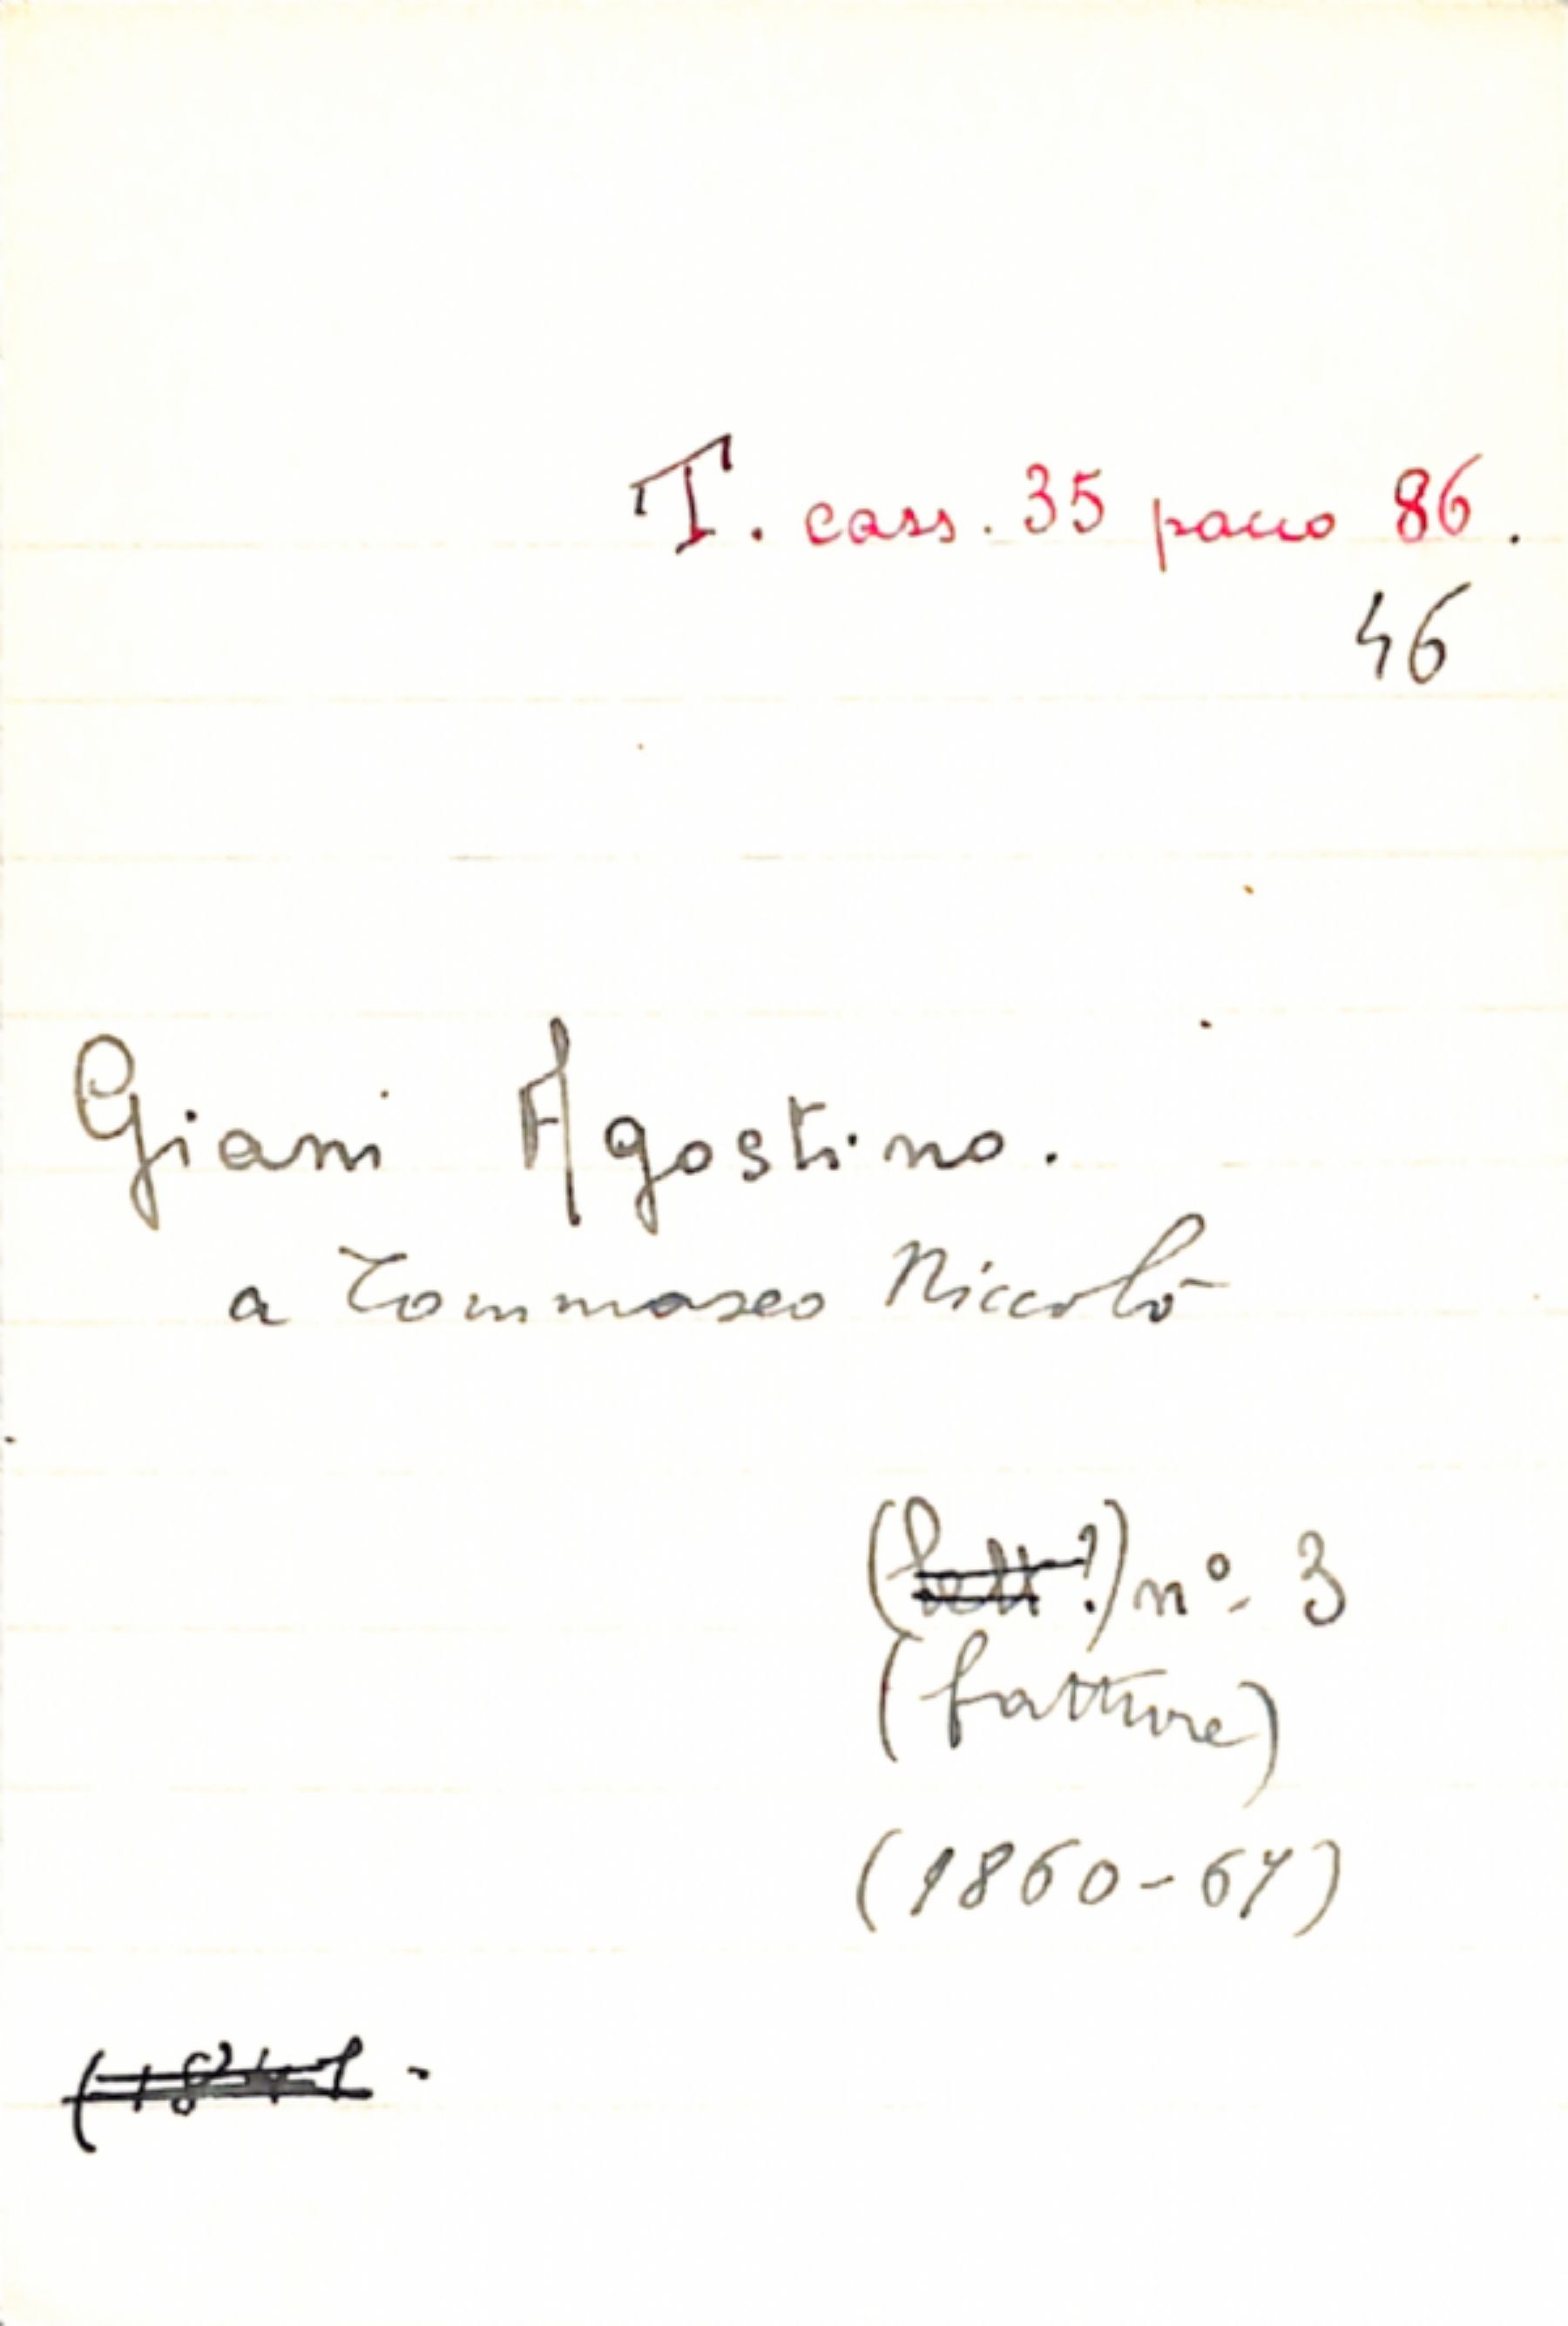 T. cass. 35 pacco 86.
46
Giani Agostino.
a Tommaseo Niccolò
(lett?) n°. 3
(fatture)
(1860-67)